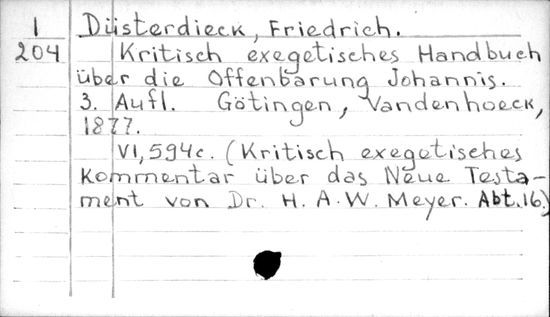 1 Düsterdieck, Friedrich.
204 Kritisch exegetisches Handbuch
über die Offenbarung Johannis.
3. Aufl. Götingen, Vandenhoeck,
1877.
VI, 594c. (Kritisch exegetisches
Kommentar über das Neue Testa-
ment von Dr. H. A. W. Meyer. Abt. 16.)